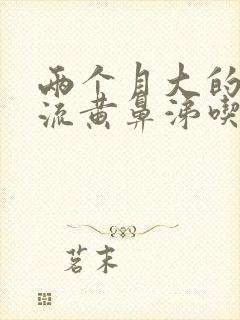 两个自大的
流黄鼻涕喫
茗末